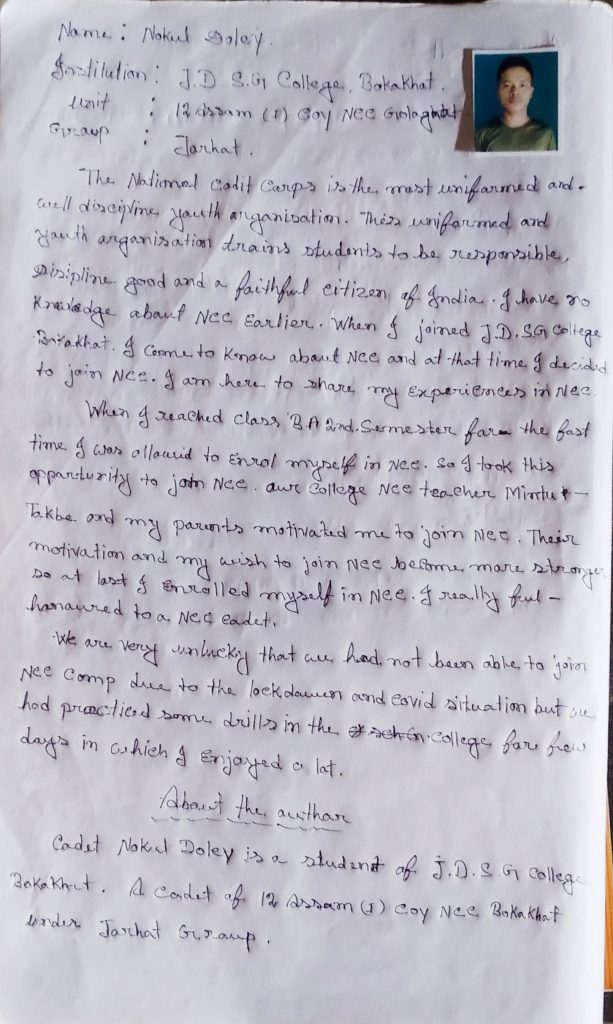 Name : Nokul Doley.
Institution : J.D S.G College, Bokakhat.
Unit : 12 Assam (I) Coy NCC Golaghat
Group : Jorhat.
The National Cadit Corps is the most uniformed and-
well discipline youth organisation. This uniformed and
youth organisation trains students to be responsible,
Disipline good and a faithful citizen of India. I have no
Knowledge about NCC Earlier. When I joined J.D.SG College
Bokakhat. I Come to Know about NCC and at that time I decided
to join NCC. I am here to share my Experiences in NCC.
When I reached class B.A 2nd. Semester for the fast
time I was allowed to Enrol myself in NCC. So I took this
opparturity to join NCC. our College NCC teacher Mintu -
Takbe and my parents motivated me to join NCC. Their
motivation and my wish to join NCC become more stronger
so at last I Enrolled myself in NCC. I really ful -
honoured to a NCC cadet.
We are very unlucky that we had not been able to join
NCC Comp due to the lockdown and covid situation but we
had practiced some drills in the College for few
days in which I Enjoyed a lot.
About the author
Cadet Nokul Doley is a student of J.D.S G College
Bokakhat. A Cadet of 12 Assam (I) Coy NCC Bokakhat
under Jorhat Group.